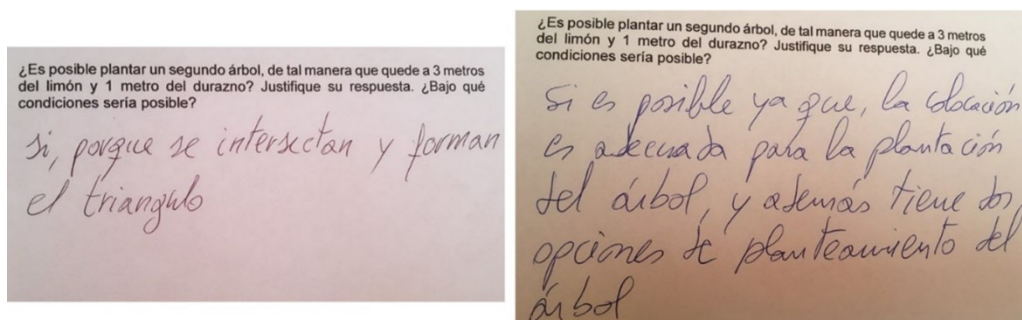 ¿Es posible plantar un segundo árbol, de tal manera que quede a 3 metros
del limón y 1 metro del durazno? Justifique su respuesta. ¿Bajo qué
condiciones sería posible?
si, porque se intersectan y forman
el triangulo
¿Es posible plantar un segundo árbol, de tal manera que quede a 3 metros
del limón y 1 metro del durazno? Justifique su respuesta. ¿Bajo qué
condiciones sería posible?
Si es posible ya que, la colocación
es adecuada para la plantación
del árbol, y además tiene dos
opciones de planteamiento del
árbol